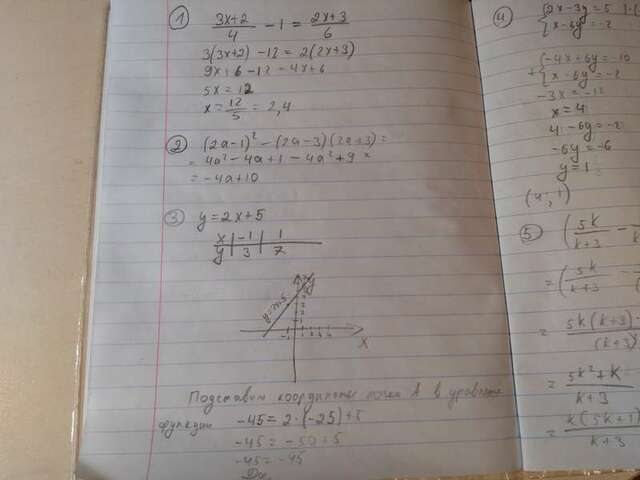 1
3x+2/4 - 1 = 2x+3/6
3(3x+2) - 12 = 2(2x+3)
9x+6-12-4x+6
5x = 12
x = 12/5 = 2,4
2 (2a-1)² - (2a-3)(2a+3) =
= 4a² - 4a + 1 - 4a² + 9 =
= -4a+10
3 y = 2x+5
x | -1 | 1
y | 3 | 7
y
x
Подставим координаты точки А в уравнение
функции -45 = 2·(-25)+5
-45 = -50+5
-45 = -45
Да
4
2x-3y=5
x-6y=-2
-4x+6y=-10
+ x-6y=-2
-3x=-12
x=4
4-6y=-2
-6y=-6
y=1
(4; 1)
5 (5k/k+3 -
= (5k/k+3 -
= 5k(k+3)
(k+3)
= 5k²+k/k+3
= k(5k+1)/k+3